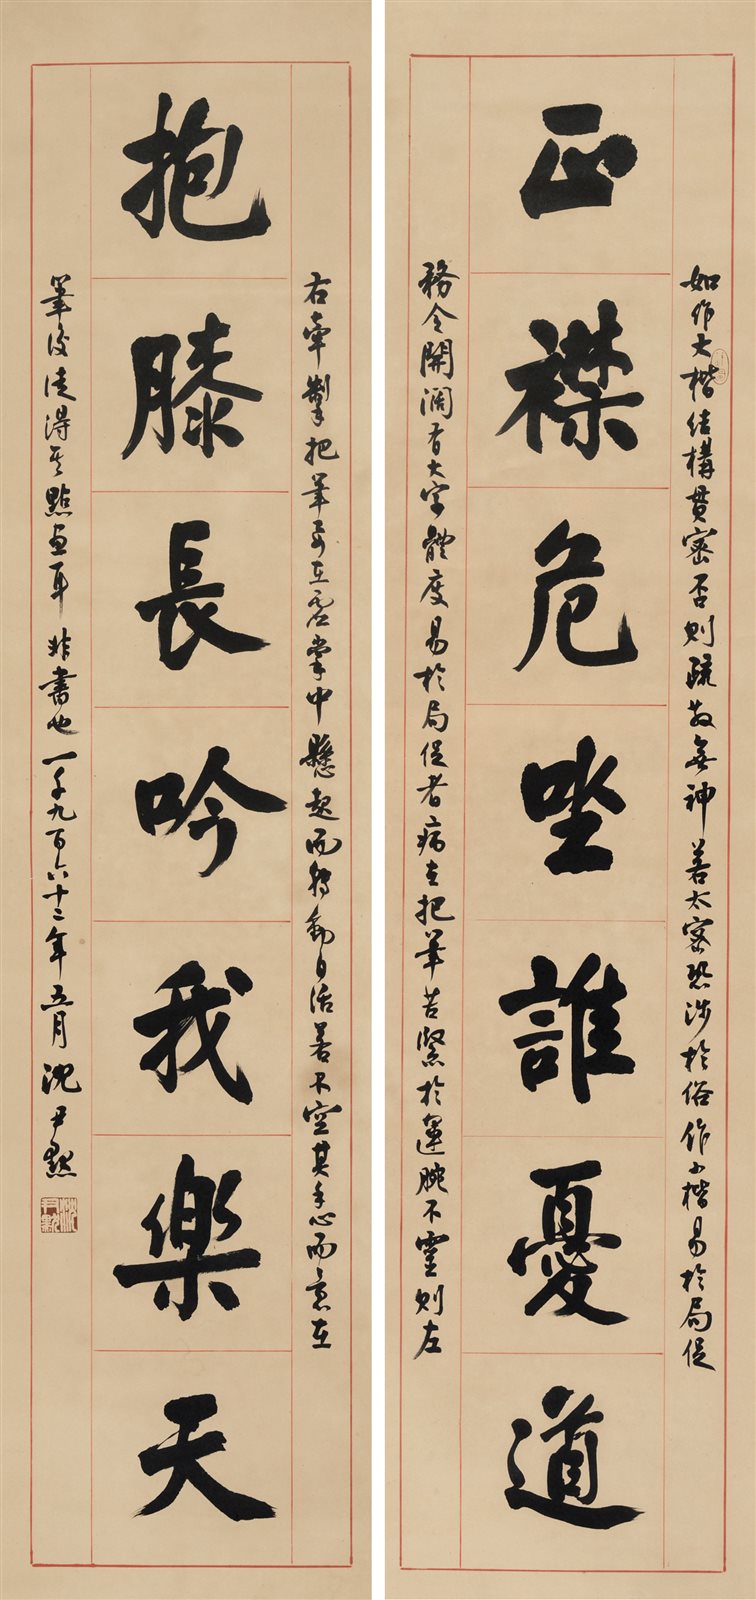 正襟危坐誰憂道
如作大楷結構貴密否則疏散無神若太密恐涉於俗作小楷易於局促
務令開濶有大字體度易於局促者病在把筆苦緊於運腕不靈則左
抱膝長吟我樂天
右牽掣把筆要在虛掌中懸起而轉動自活若不空其手心而意在
筆後徒得其點畫耳非書也一千九百六十二年五月沈尹默
沈尹默